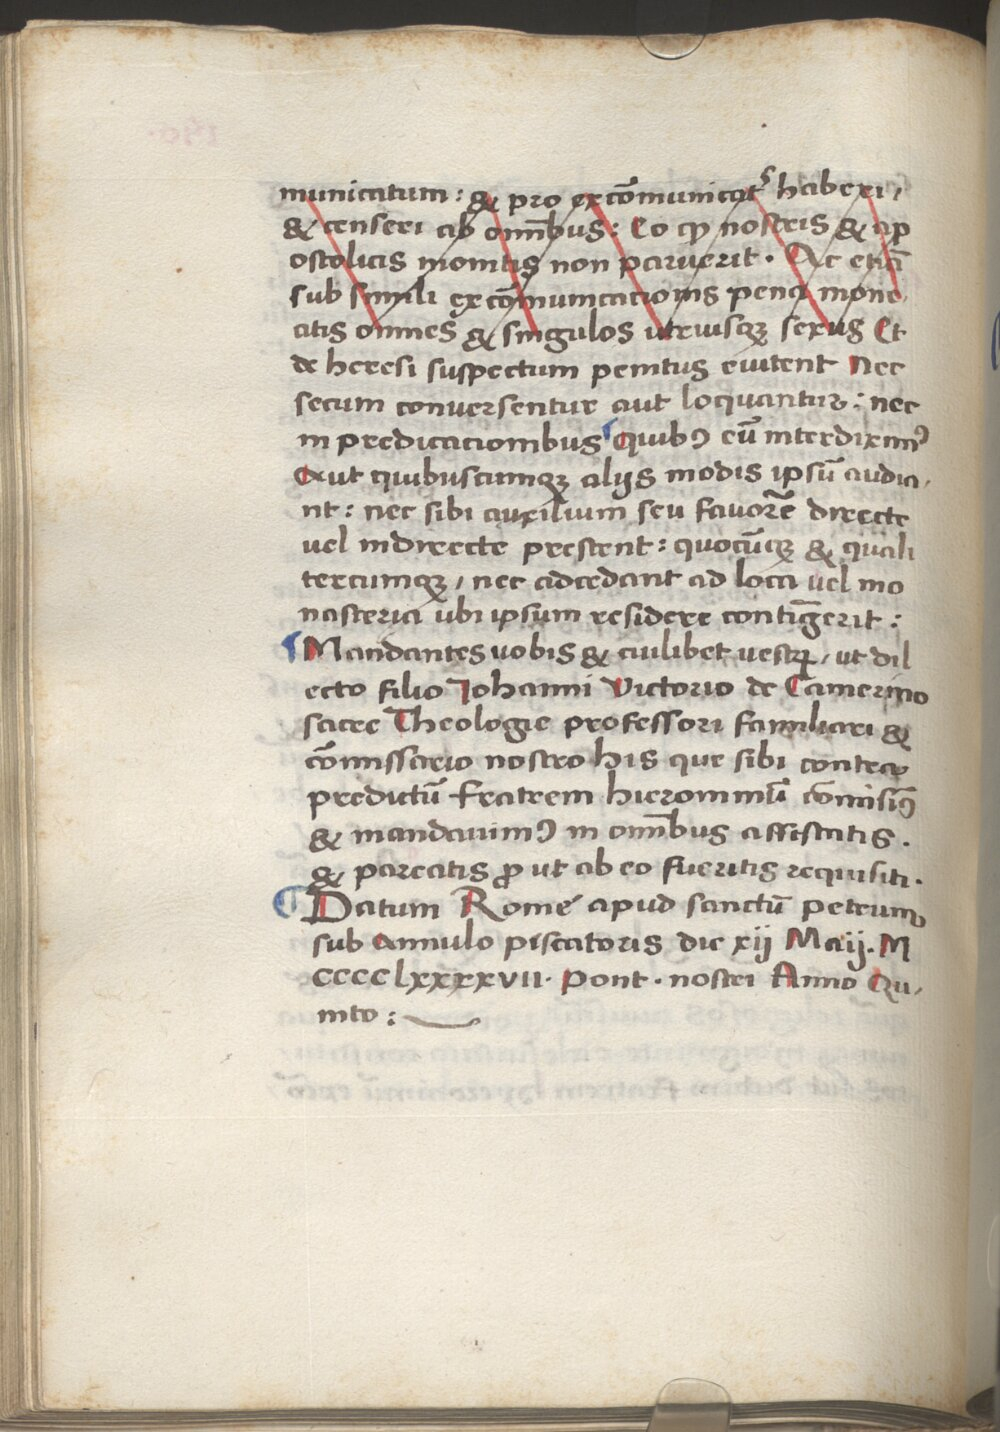 municatum : & pro excōmunicatˢ haberi,
& censeri ab omībus : Eo ꝙ nostris & ap
ostolicis monitis non paruerit . Ac etiā
sub simili excōmunicationis pena mone
atis omnes & singulos utriusqꝫ sexus Et
de heresi suspectum penitus euitent Nec
secum conuersentur aut loquantur : nec
in predicacionibus Quibꝰ eū interdiximꝰ
Aut quibuscumqꝫ alijs modis ipsū audia,
nt : nec sibi auxilium seu fauorē directe
uel indirecte prestent : quocūqꝫ & quali
tercumqꝫ, nec adcedant ad loca uel mo
nasteria ubi ipsum residere contigerit :
Mandantes uobis & cuilibet vestrꝝ, ut dil
ecto filio Johanni Victorio de Camerino
sacre Theologie professori familiari &
cōmissario nostro his que sibi contra
predictū fratrem hieronimū cōmisimꝰ
& mandauimꝰ in omībus assistatis .
& pareatis ꝓ ut ab eo fueritis requisiti .
Datum Rome apud sanctū petrum
sub Annulo piscatoris die xij Maij . M
CCCClxxxxvii . Pont . nostri Anno Qu,
into :